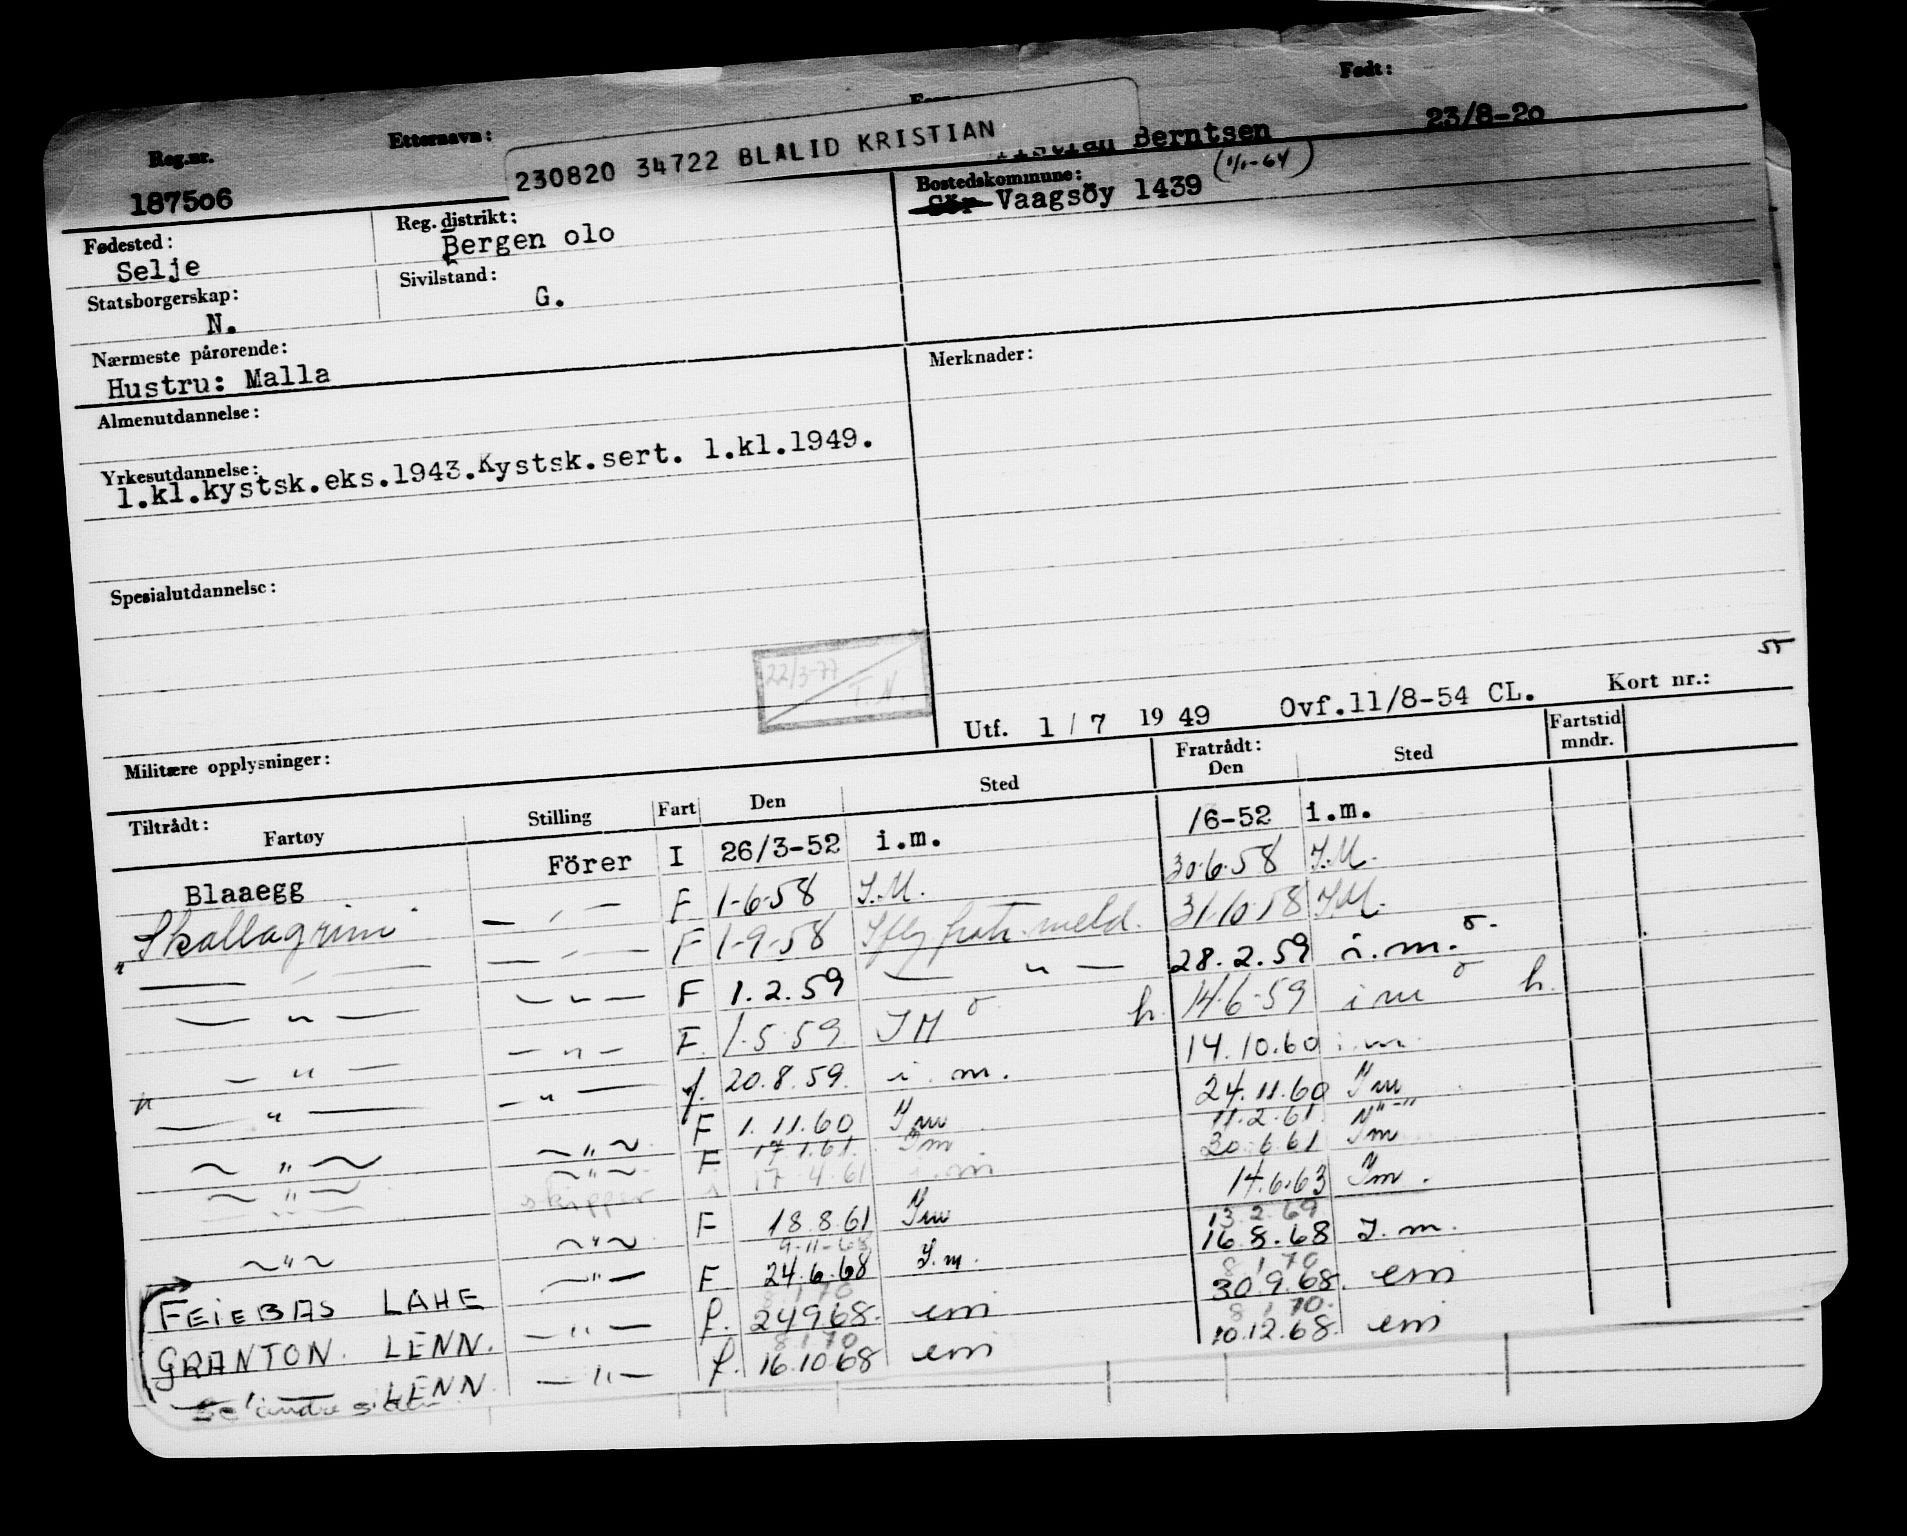 Reg.nr. Etternavn: Født:
187506 230820 34722 BLALID KRISTIAN Berntsen 23/8-20
Fødested: Selje
Reg. distrikt: Bergen olo
Bostedskommune: Vaagsöy 1439 (1/1-64)
Statsborgerskap: N.
Sivilstand: G.
Nærmeste pårørende:
Hustru: Malla
Merknader:
Almenutdannelse:
Yrkesutdannelse:
1.kl.kystsk.eks.1943.Kystsk.sert. 1.kl.1949.
Spesialutdannelse:
22/3-77
T.N
55
Utf. 1 / 7 19 49 Ovf.11/8-54 CL. Kort nr.:
Militære opplysninger:
Tiltrådt: Fartøy Stilling Fart Den Sted Fratrådt: Den Sted Fartstid mndr.
Blaaegg Förer I 26/3-52 i.m. /6-52 i.m.
Skallagrim — " — F 1-6-58 I.M. 30.6.58 I.M.
— " — — " — F 1-9-58 meld. 31.10.58 I.M.
— " — — " — F 1.2.59 — " — 28.2.59 i.m.
— " — — " — F. 1.5.59 IM h. 14.6.59 im h.
— " — — " — f. 20.8.59. i.m. 14.10.60 i.m.
— " — — " — F 1.11.60 Im 24.11.60 Im
— " — — " — F 17.1.61. Im 11.2.61 — " —
— " — skipper 17.4.61 i.m 30.6.61 Im
— " — — " — F 18.8.61 Im 14.6.63 Im.
9-11-68 13.2.69
FEIEBAS LAHE — " — F 24.6.68 I.m. 16.8.68 I.m.
8 1 70 8 1 70
GRANTON. LENN. — " — f. 24968. em 30.9.68. em
8 1 70 8 1 70.
— " — LENN. — " — f. 16.10.68 em 10.12.68. em
Se andre siden